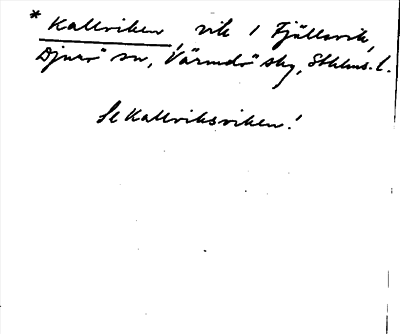 * Kallviken, vik i Fjällsvik,
Djurö sn, Värmdö skg, Sthlms. l.
Se Kallviksviken!